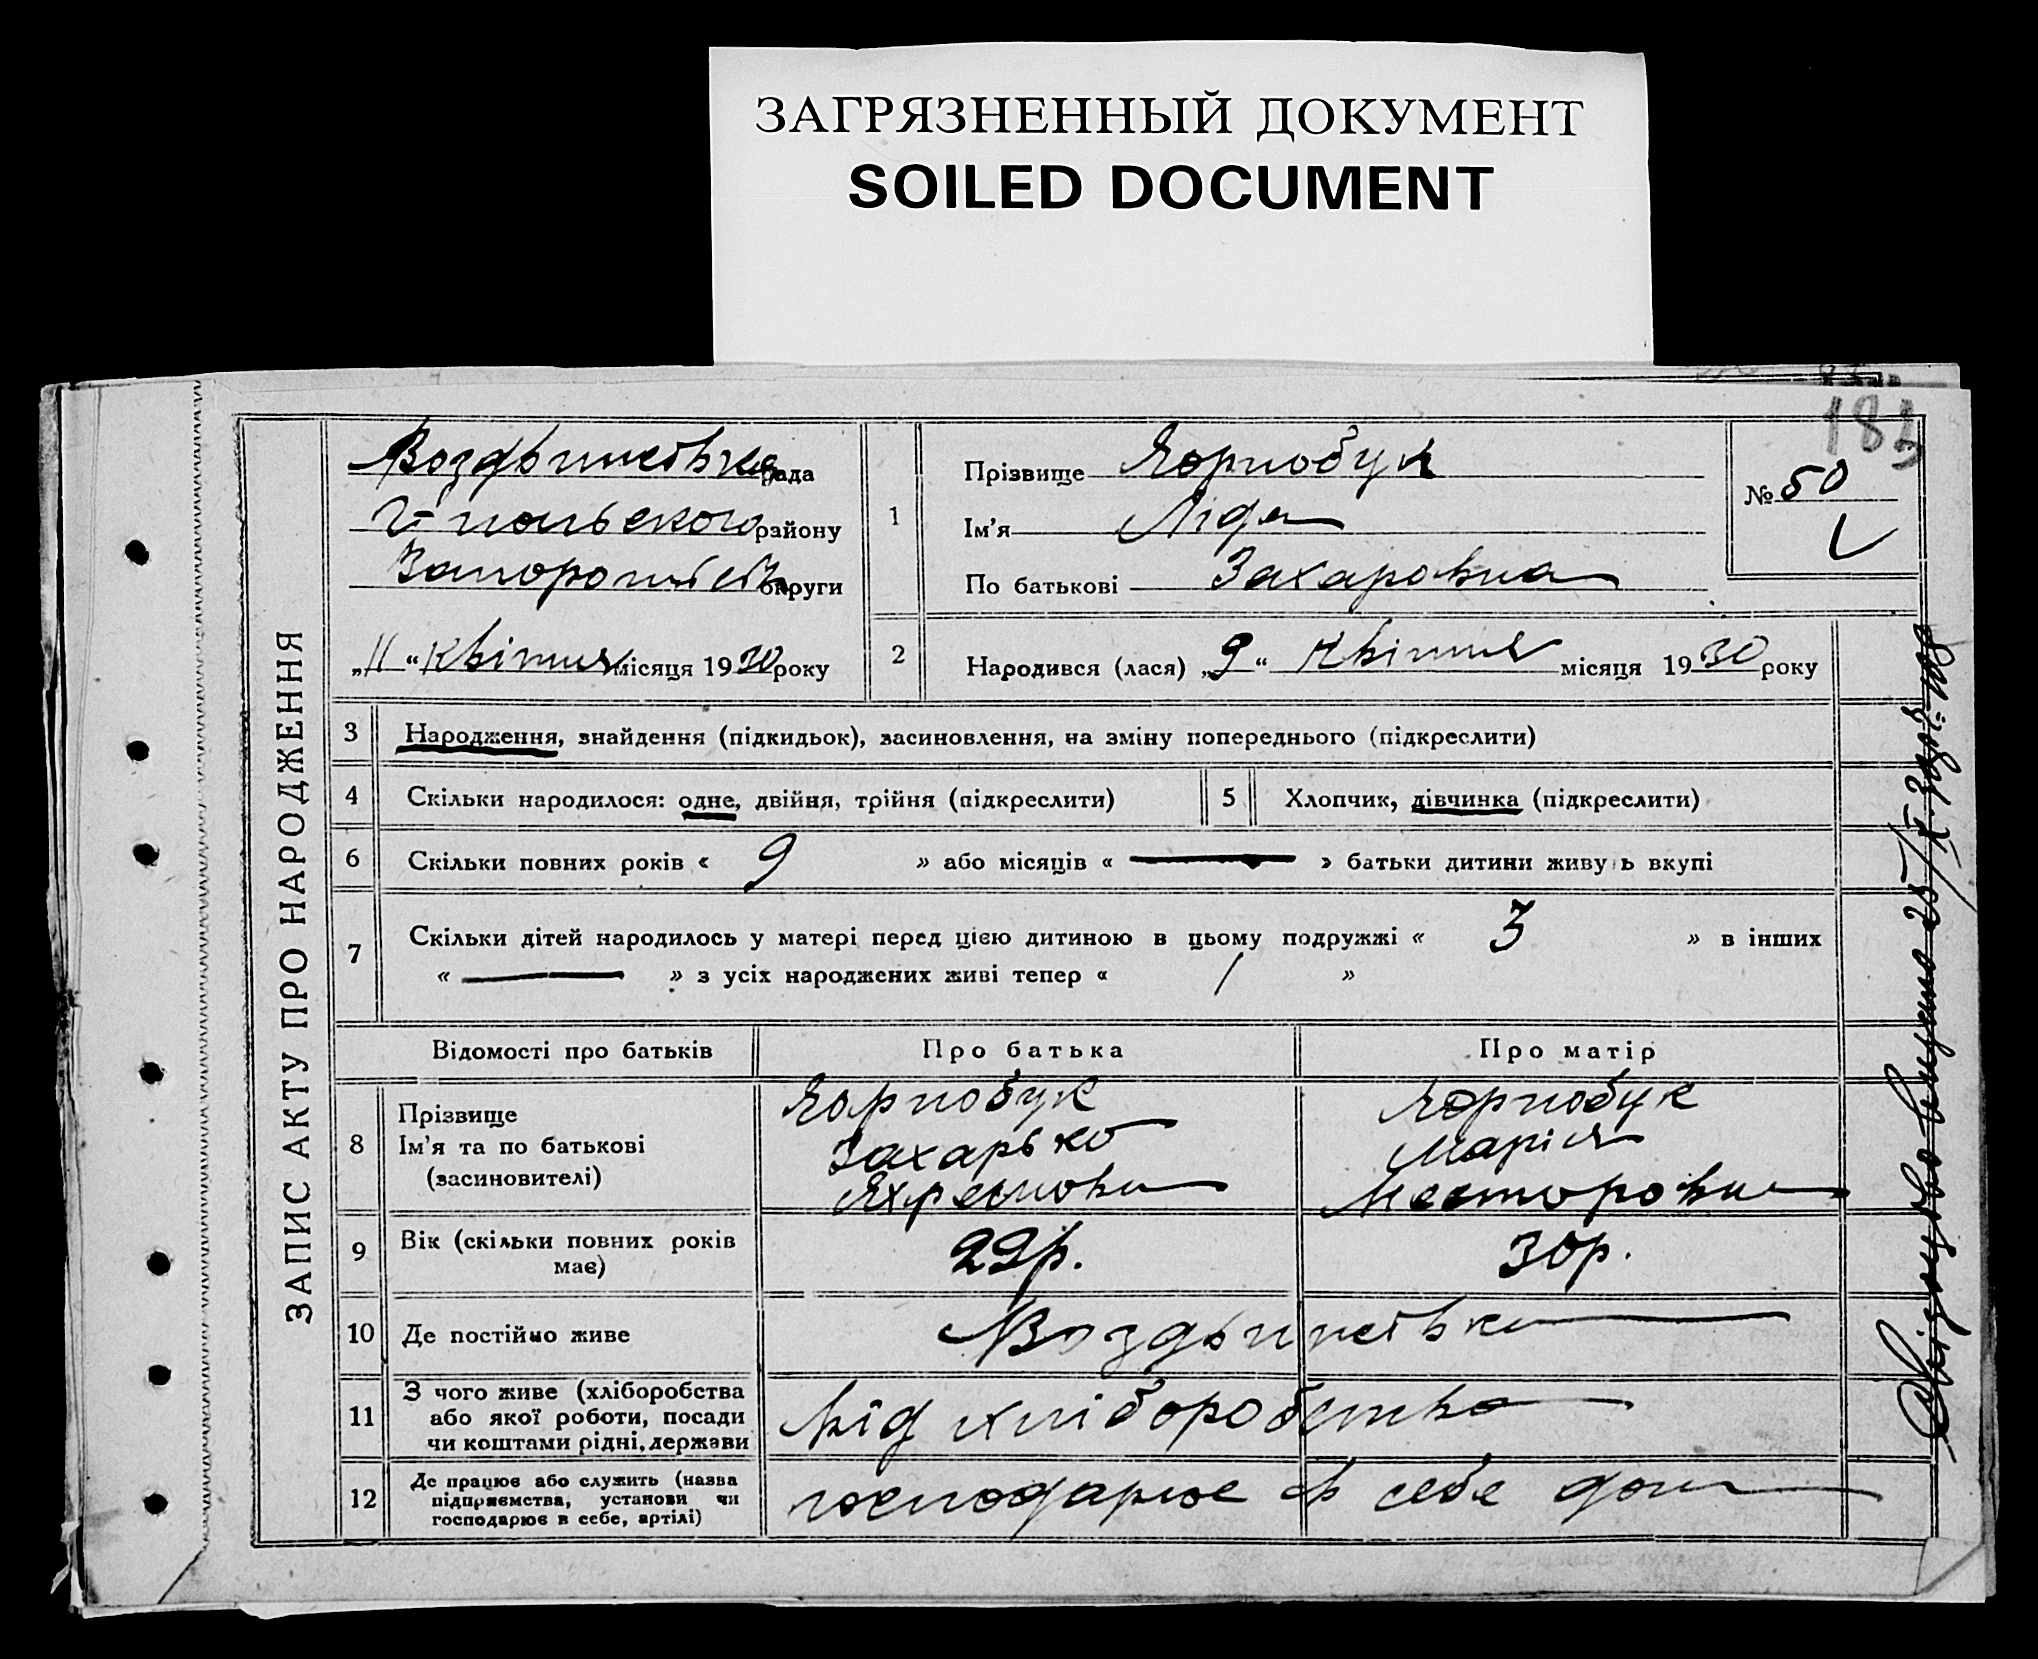 ЗАГРЯЗНЕННЫЙ ДОКУМЕНТ
SOILED DOCUMENT
ЗАПИС АКТУ ПРО НАРОДЖЕННЯ
рада
району
округи
„11“ Квітня місяця 1930 року
1
Прізвище
Ім'я Ліда
По батькові Захаровна
№ 50
2
Народився (лася) „9“ Квітня місяця 1930 року
3 Народження, знайдення (підкидьок), засиновлення, на зміну попереднього (підкреслити)
4 Скільки народилося: одне, двійня, трійня (підкреслити)
5 Хлопчик, дівчинка (підкреслити)
6 Скільки повних років « 9 » або місяців « — » батьки дитини живуть вкупі
7 Скільки дітей народилось у матері перед цією дитиною в цьому подружжі « 3 » в інших
« — » з усіх народжених живі тепер « 1 »
Відомості про батьків Про батька Про матір
8 Прізвище
Ім'я та по батькові Захарько Марія
(засиновителі) Несторовна
9 Вік (скільки повних років має) 29р. 30р.
10 Де постійно живе
11 З чого живе (хліборобства
або якої роботи, посади
чи коштами рідні, держави
від хліборобства
12 Де працює або служить (назва
підприємства, установи чи
господарює в себе, артілі)
господарює в себе дома